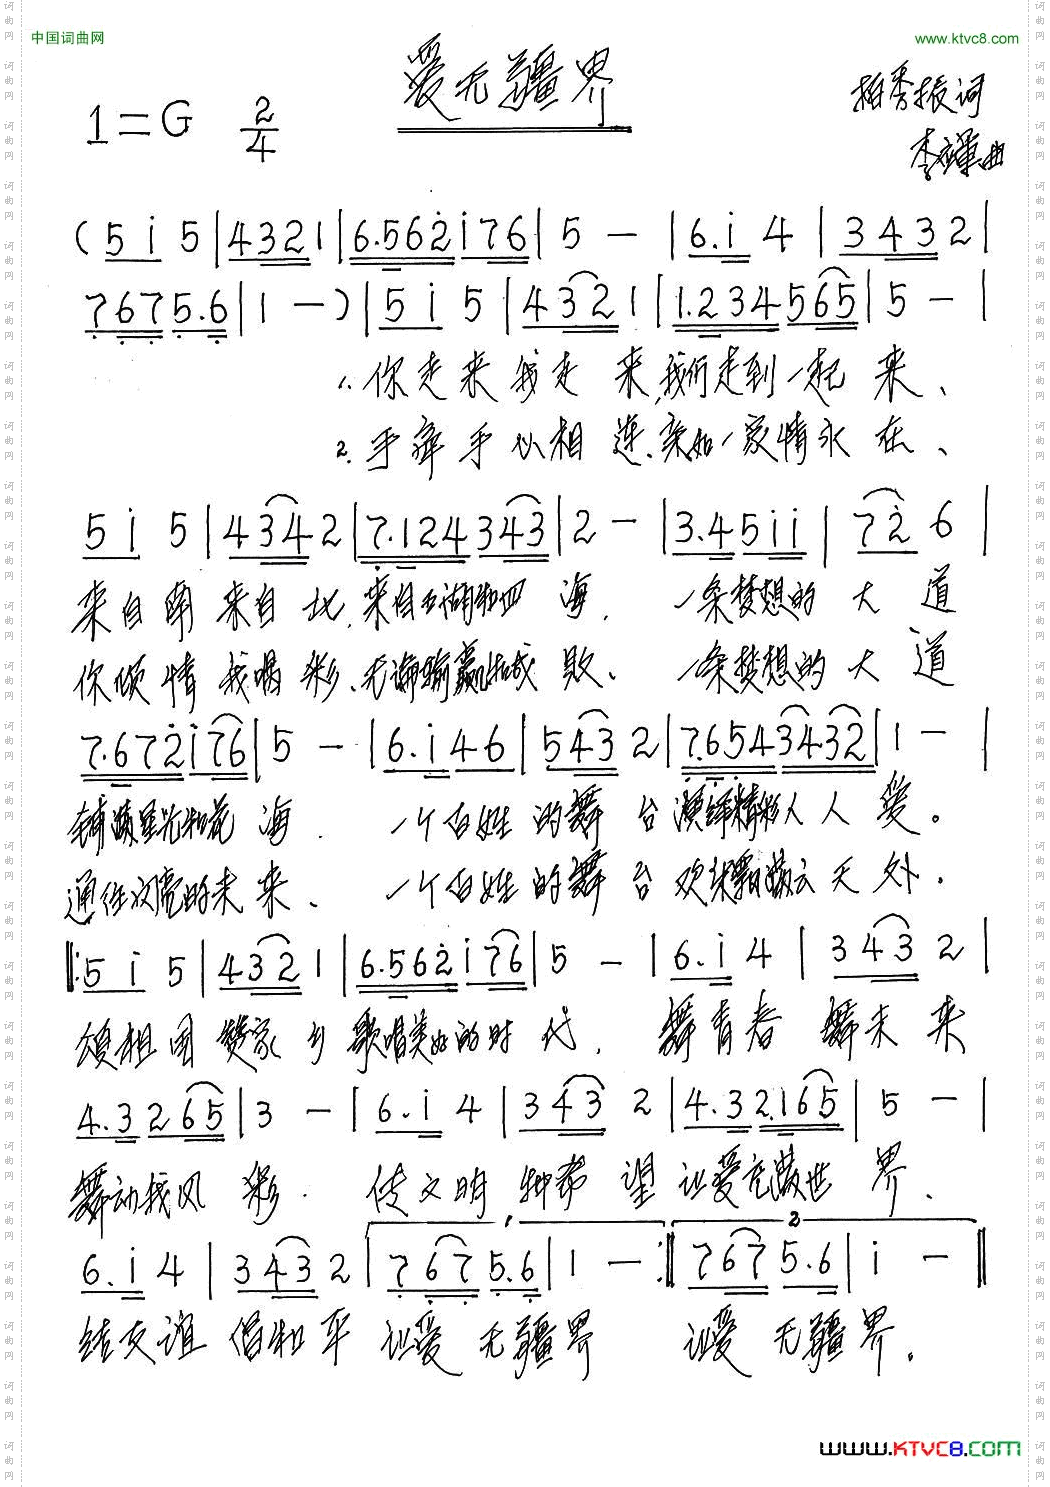 中国词曲网
www.ktvc8.com
爱无疆界
1=G 2/4
柏秀振词
李 曲
(5 i 5|4321|6.562i76|5 — |6.i 4|3432|
7675.6|1 —)|5 i 5|4321|1.234565|5 —|
1.你走来我走来,我们走到一起来、
2.手牵手心相连、亲如一家情永在、
5 i 5|4342|7.124343|2 —|3.45ii|72 6|
来自南来自北,来自五湖和四海, 一条梦想的大道
你倾情我喝彩、无论输赢和成败、 一条梦想的大道
7.672i76|5 —|6.i46|5432|7.6543432|1 —|
铺满星光和花海. 一个百姓的舞台演绎精彩人人爱。
通往闪亮的未来、 一个百姓的舞台欢 云天外.
‖:5 i 5|4321|6.562i76|5 —|6.i 4|343 2|
颂祖国赞家乡歌唱美好的时代, 舞青春舞未来
4.3265|3 —|6.i 4|343 2|4.32.165|5 —|
舞动我风彩. 传文明种希望让爱充满世界、
6.i 4|343 2|7675.6|1 —:‖7675.6|i —‖
1. 2
结友谊倡和平让爱无疆界 让爱无疆界.
www.KTVC8.com